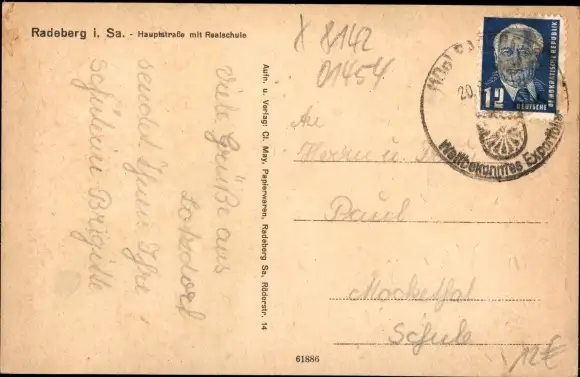 Radeberg i. Sa. - Hauptstraße mit Realschule
X 8142
01454
Viele Grüße aus
Lotzdorf
sendet Ihnen Ihre
Schülerin Brigitte
Aufn. u. Verlag: Cl. May, Papierwaren, Radeberg Sa. Röderstr. 14
An
Herrn u.
Paul
Schule
61886
12€
12
DEUTSCHE
DEMOKRATISCHE REPUBLIK
20.
Weltbekanntes